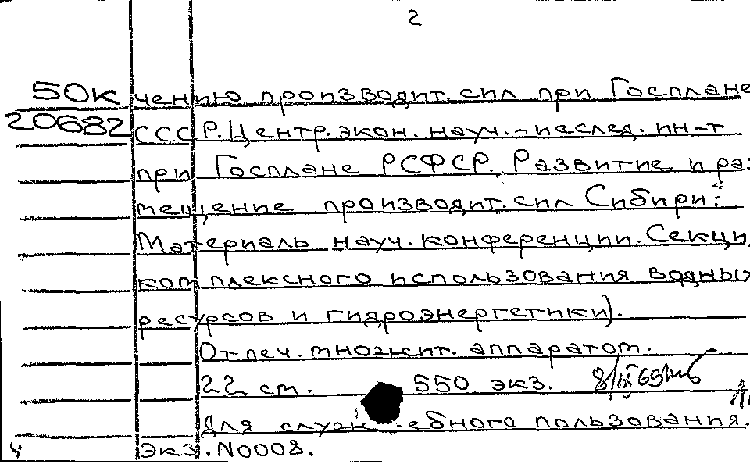 2
50К чению производит. сил при Госплане
20682 СССР. Центр. экон. науч.-исслед. ин-т
при Госплане РСФСР. Развитие и раз-
мещение производит. сил Сибири:
Материалы науч. конференции. Секци
комплексного использования водных
ресурсов и гидроэнергетики).
Отпеч. множит. аппаратом.
22 см. 550 экз.
Для служебного пользования.
Экз. N0008.